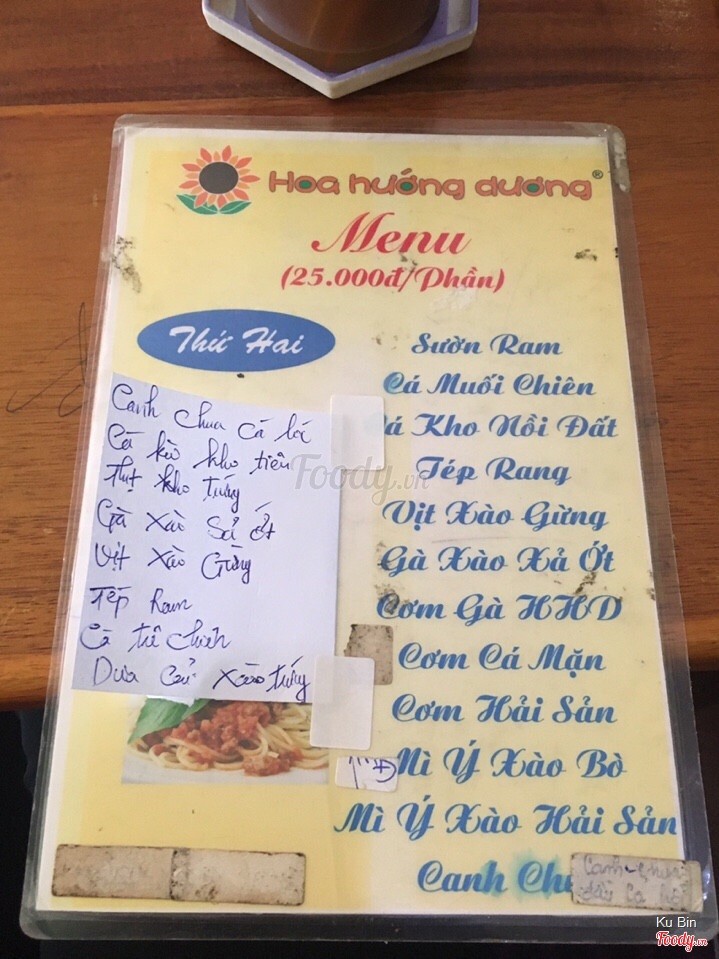 Hoa hướng dương®
Menu
(25.000đ/Phần)
Thứ Hai
Canh chua cá lóc
Cá kèo kho tiêu
Thịt kho trứng
Gà xào sả ớt
Vịt xào Gừng
Tép Ram
Cá trê chiên
Dưa cải xào trứng
Sườn Ram
Cá Muối Chiên
á Kho Nồi Đất
Tép Rang
Vịt Xào Gừng
Gà Xào Xả Ớt
Cơm Gà HHD
Cơm Cá Mặn
Cơm Hải Sản
Mì Ý Xào Bò
Mì Ý Xào Hải Sản
Canh Chu
Canh chua
Foody.vn
Ku Bin
Foody.vn